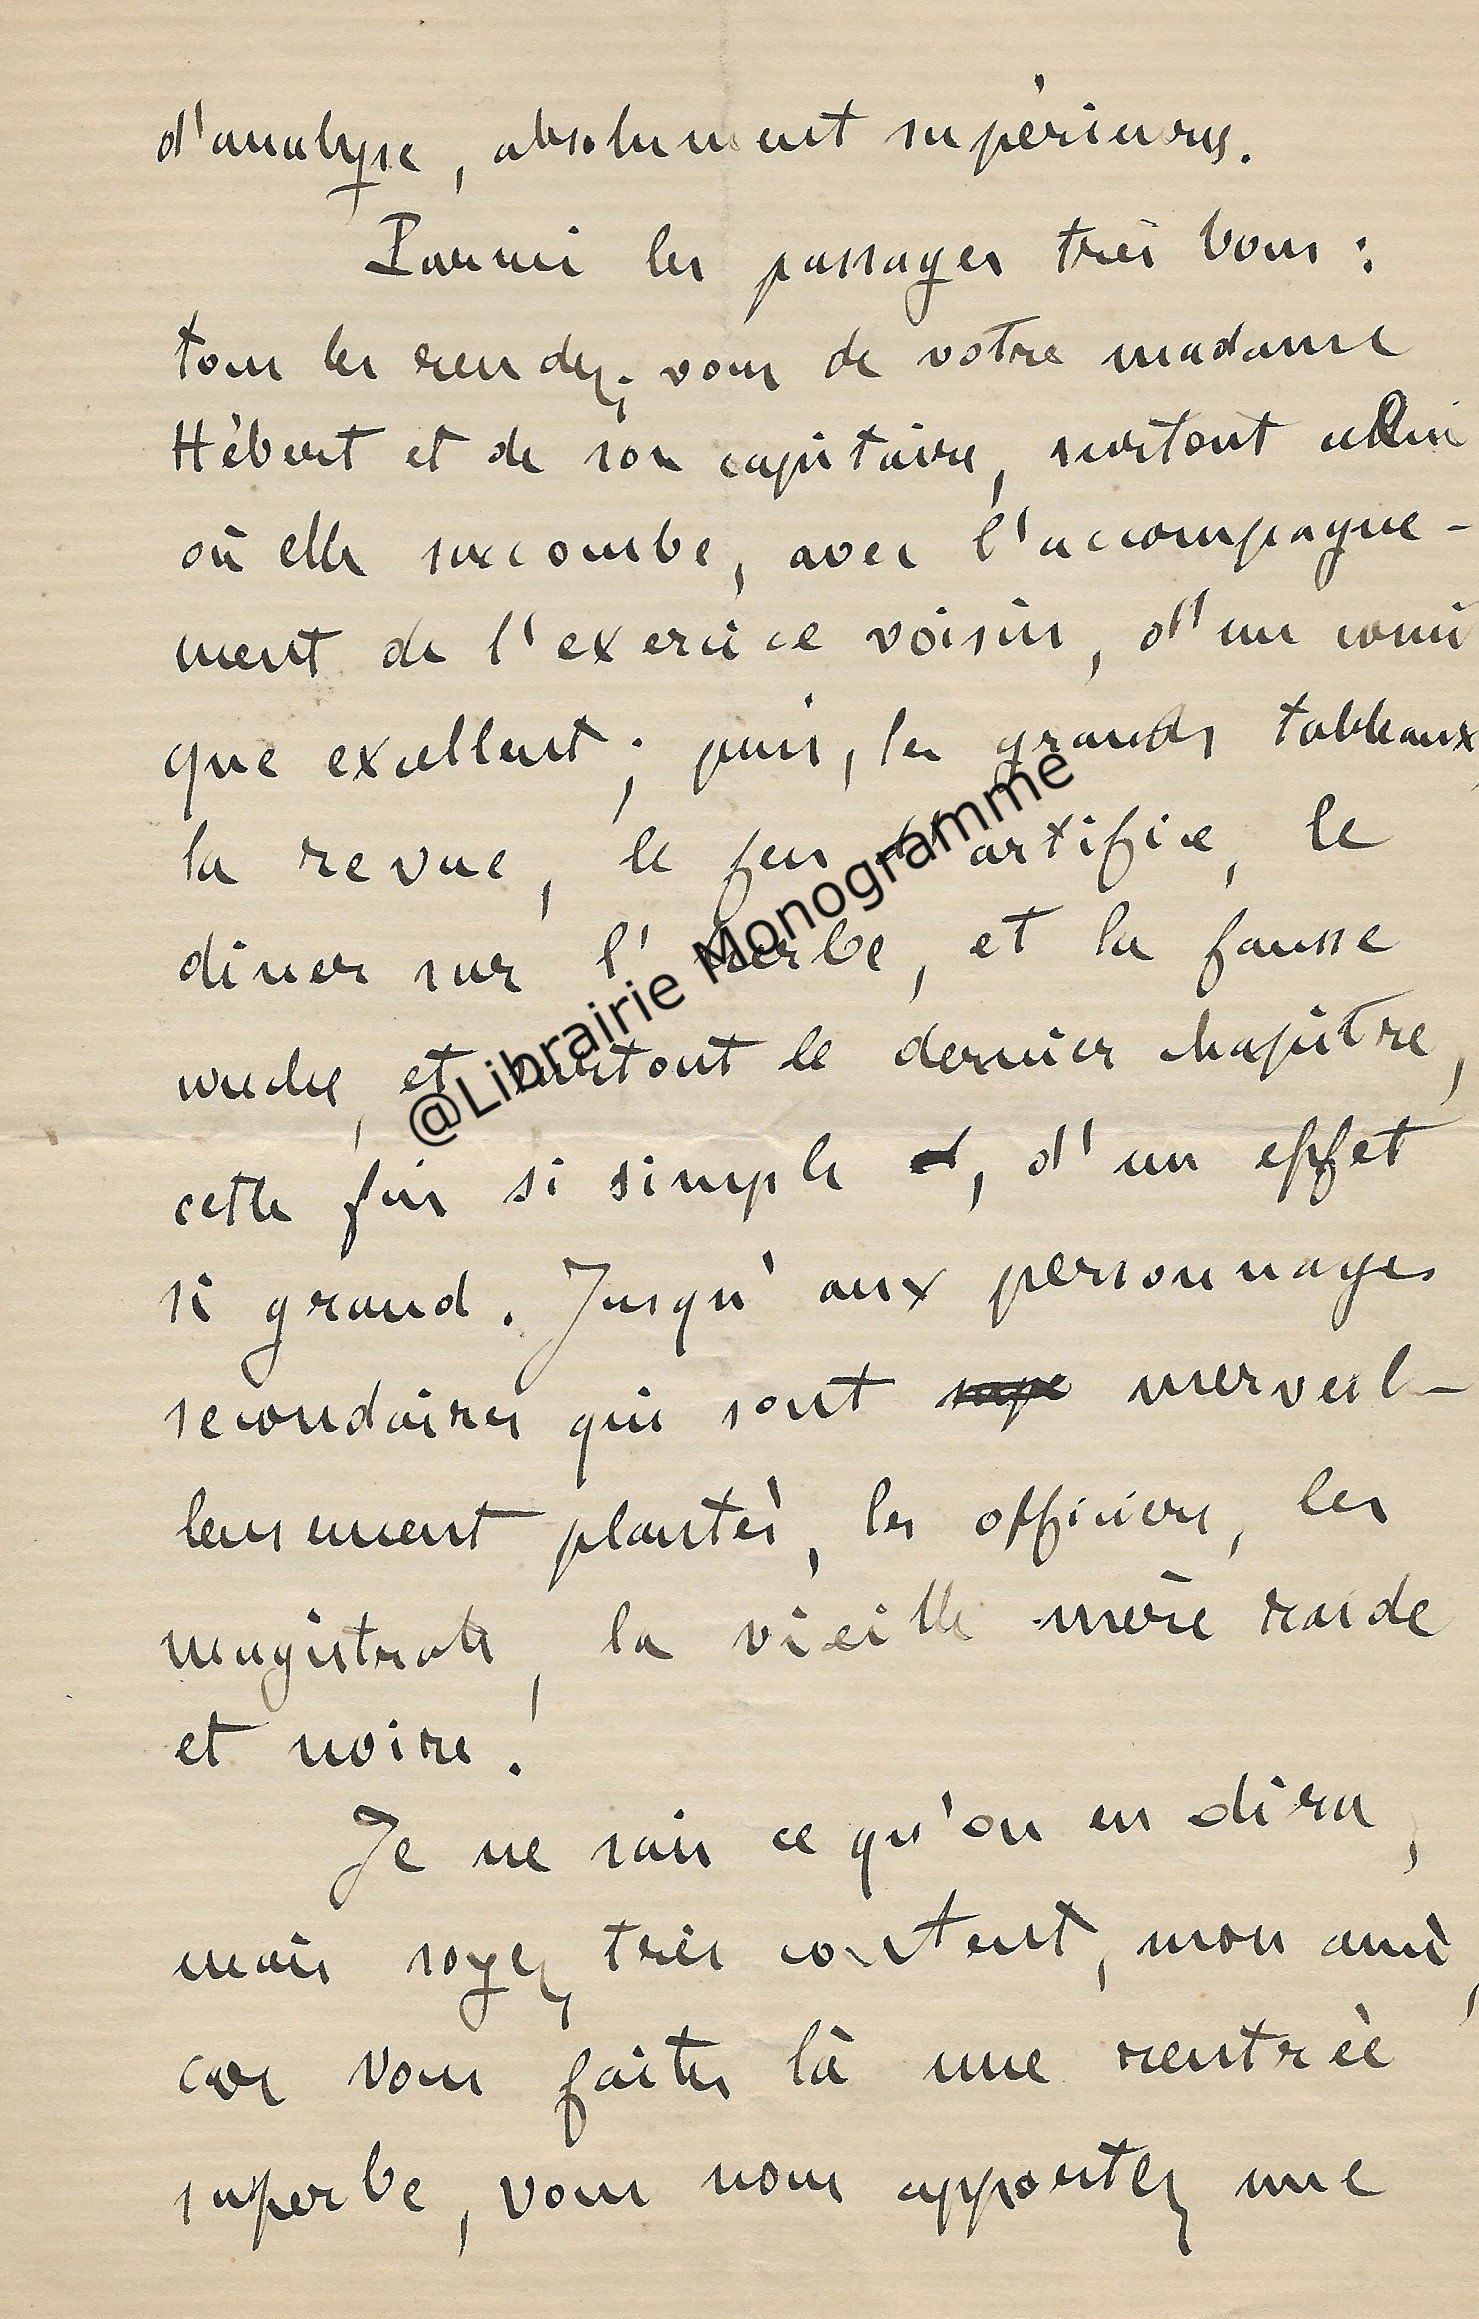 d'analyse, absolument supérieures.
Parmi les passages très bons :
tous les rendez-vous de votre madame
Hébert et de son capitaine, surtout celui
où elle succombe, avec l'accompagne-
ment de l'exercice voisin, d'un comi
que excellent ; puis, les grands tableaux,
la revue, le feu d'artifice, le
dîner sur l'herbe, et la fausse
couche, et surtout le dernier chapitre,
cette fin si simple, d'un effet
si grand. Jusqu'aux personnages
secondaires qui sont merveil-
leusement plantés, les officiers, les
magistrats, la vieille mère raide
et noire !
Je ne sais ce qu'on en dira,
mais soyez très content, mon ami,
car vous faites là une rentrée
superbe, vous nous apportez une
@Librairie Monogramme